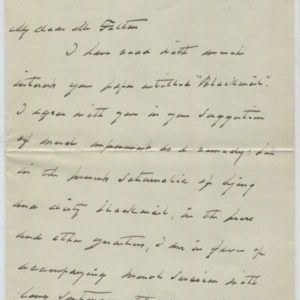 My dear Mr Factor
I have read with much
interest your paper entitled "Blackmail".
I agree with you in your suggestion
of much imprisonment as a remedy; but
in the present Saturnalia of lying
and dirty blackmail, in the
and other quarters, I am in favor of
accompanying with
long sentences